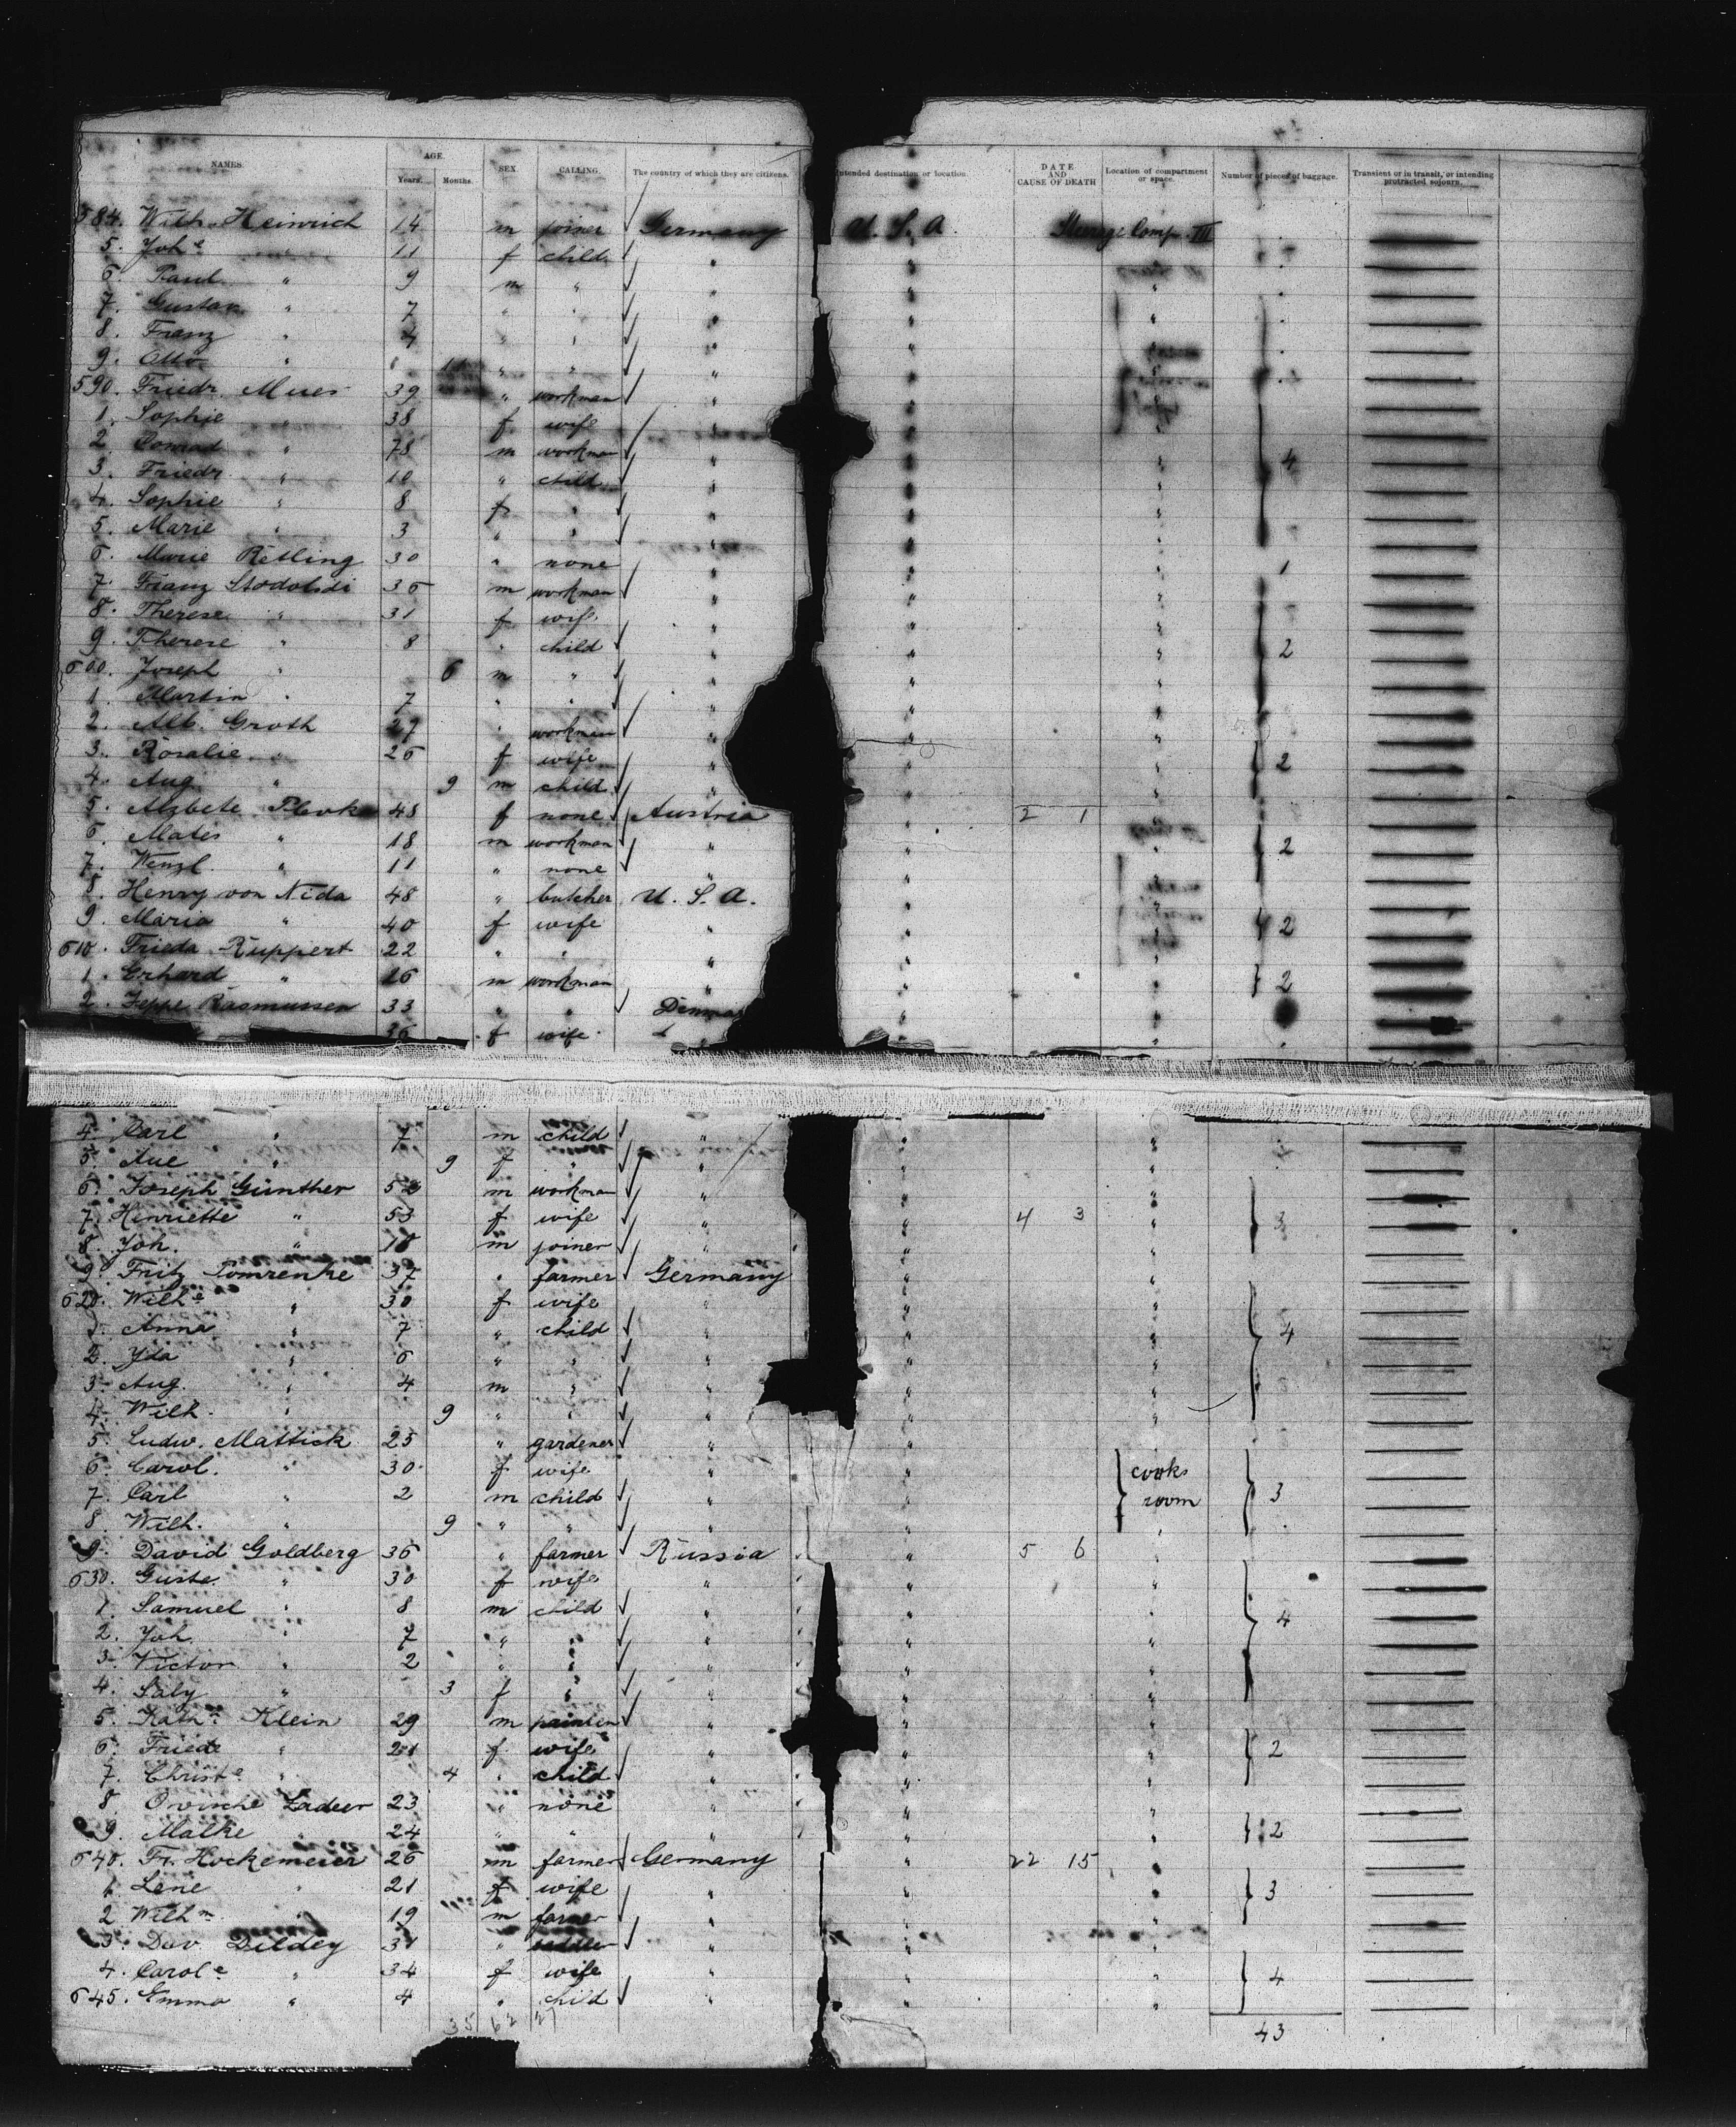 NAMES. AGE. Years. Months. SEX. CALLING. The country of which they are citizens. Intended destination or location. DATE AND CAUSE OF DEATH Location of compartment or space. Number of pieces of baggage. Transient or in transit, or intending protracted sojourn.
584. Wilh. Heinrich 14 m joiner Germany U. S. A. Comp. III
5. Joh.e 11 f child "
6. Paul " 9 m " "
7. Gustav " 7 " " "
8. Franz " 4 " " "
9. Otto " " " "
590. Friedr. Mues 39 " workman "
1. Sophie " 38 f wife "
2. Conrad " 78 m workman " 4
3. Friedr. " 10 " child "
4. Sophie " 8 f " "
5. Marie " 3 " " "
6. Marie Retling 30 " none " 1
7. Franz Stodolsdi 36 m workman "
8. Therese " 31 f wife "
9. Therese " 8 " child " 2
600. Joseph " 6 m " "
1. Martin " 7 " " "
2. Alb. Groth 27 " workman "
3. Rosalie " 26 f wife " 2
4. Aug. " 9 m child "
5. Alzbete 48 f none Austria 2 1
6. Mates " 18 m workman " 2
7. Wenzl. 11 " none "
8. Henry von Nida 48 " butcher U. S. A.
9. Maria " 40 f wife " 2
610. Frieda Ruppert 22 " " "
1. Erhard " 16 m workman " 2
2. Jeppe Rasmussen 33 " " Denmar
36 f wife
4. Carl " 7 m child "
5. Ane " 9 f " "
6. Joseph Günther 52 m workman "
7. Henriette " 53 f wife " 4 3 3
8. Joh. " 18 m joiner "
9. Fritz Pomrenke 37 " farmer Germany
620. Wilh.e " 30 f wife "
1. Anna " 7 " child " 4
2. Ida " 6 " " "
3. Aug. " 4 m " "
4. Wilh. " 9 " " "
5. Ludw. Mattick 25 " gardener "
6. Carol. " 30 f wife " cooks
7. Carl " 2 m child " room 3
8. Wilh. " 9 " " "
9. David Goldberg 36 " farmer Russia 5 6
630. Guste. " 30 f wife "
1. Samuel " 8 m child " 4
2. Joh. " 7 " " "
3. Victor " 2 " " "
4. Saly " 3 f " "
5. Kath. Klein 29 m "
6. Friede " 21 f wife " 2
7. Christ.e " 4 " child "
8. Ladeer 23 " none "
9. Malke " 24 " " " 2
640. Fr. Hockemeier 26 m farmer Germany 22 15
1. Lene " 21 f wife " 3
2. Wilh.m " 19 m farmer "
3. Dav. Dildey 31 " "
4. Carol.e " 34 f wife " 4
645. Emma " 4 " child "
35 62 27 43